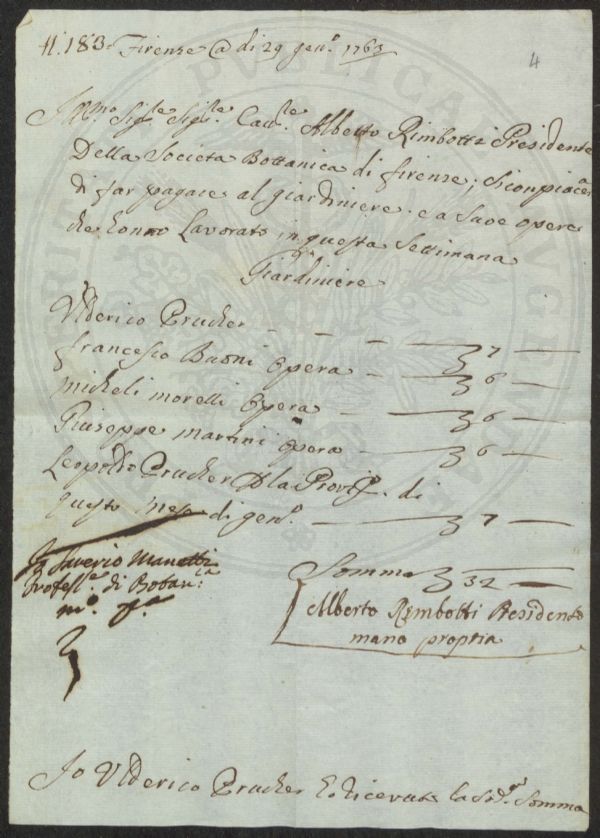 N: 183. Firenze @ di 29 gen.º 1763
4
Ill.mo Sig.re Sig.re Cav.re Alberto Rimbotti Presidente
Della Societa Bottanica di firenze; si conpiacia
di far pagare al giardiniere e a suoe opere
che Honno Lavorato in questa Settimana
Giardiniere
Ulderico Prucher - - - 7 -
francesco Buoni opera - 6 -
micheli morelli opera - 6 -
Giuseppe martini opera - 6 -
Leopoldo Prucher D la Provig.e di
questo mese di gen.º - 7 -
Somma 32 -
Saverio Manetti
Profess.re di Botan.ca
m.º p.a
Alberto Rimbotti Presidente
mano propria
Io Ulderico Prucher ho ricevuto la Sud.a Somma